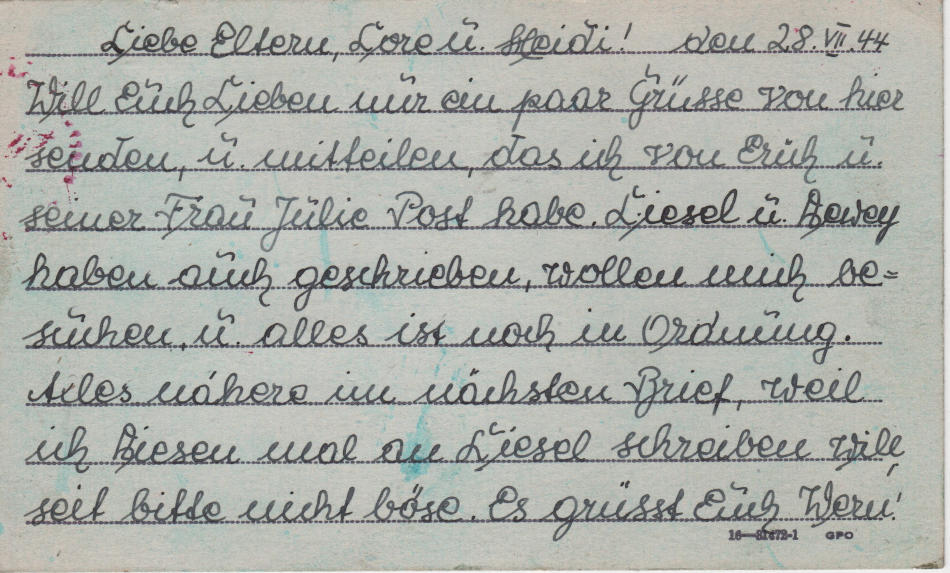 Liebe Eltern, Lore u. Heidi! den 28.VII.44
Will Euch Lieben nur ein paar Grüsse von hier
senden, u. mitteilen, das ich von Erich u.
seiner Frau Julie Post habe. Liesel u. Dewey
haben auch geschrieben, wollen mich be=
suchen, u. alles ist noch in Ordnung.
Alles nähere im nächsten Brief, weil
ich Diesen mal an Liesel schreiben will,
seit bitte nicht böse. Es grüsst Euch Wern!
16—81672-1 GPO